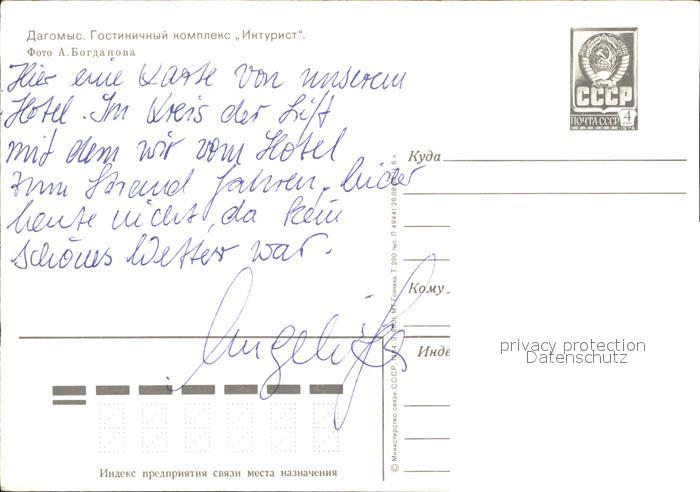 Дагомыс. Гостиничный комплекс „Интурист“.
Фото А. Богданова
Hier eine Karte von unserem
Hotel. Im Kreis der Lift
mit dem wir vom Hotel
zum Strand fahren, leider
heute nicht, da kein
schönes Wetter war.
Angelika
СССР
ПОЧТА СССР 4
1976
Куда
Кому
Инде
privacy protection
Datenschutz
© Министерство связи СССР, 
Индекс предприятия связи места назначения